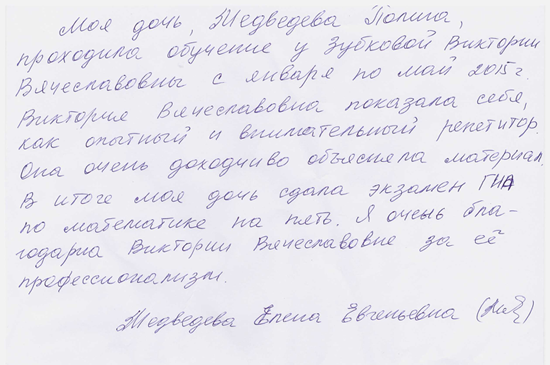 Моя дочь, Медведева Полина,
проходила обучение у Зубковой Виктории
Вячеславовны с января по май 2015 г.
Виктория Вячеславовна показала себя,
как опытный и внимательный репетитор.
Она очень доходчиво объясняла материал.
В итоге моя дочь сдала экзамен ГИА
по математике на пять. Я очень бла-
годарна Виктории Вячеславовне за её
профессионализм.
Медведева Елена Евгеньевна